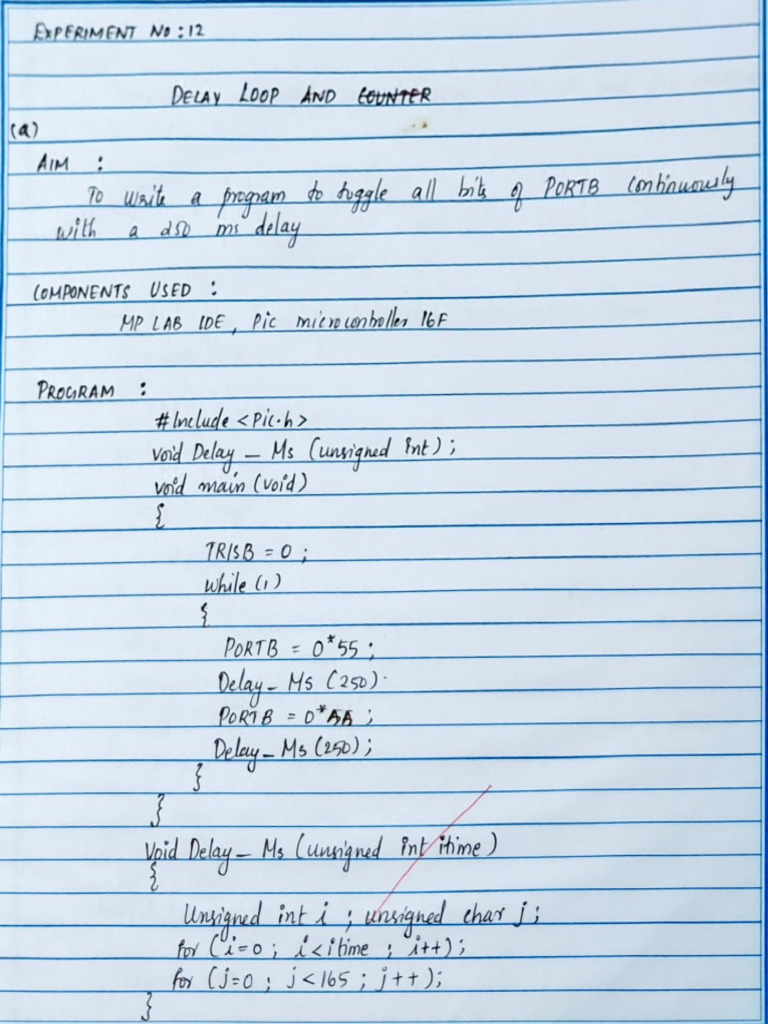 EXPERIMENT NO : 12
DELAY LOOP AND COUNTER
(a)
AIM :
To write a program to toggle all bits of PORTB continuously
with a 250 ms delay
COMPONENTS USED :
MP LAB IDE, Pic microcontroller 16F
PROGRAM :
#Include <Pic.h>
void Delay_Ms (unsigned int);
void main (void)
{
TRISB = 0 ;
while (1)
{
PORTB = 0*55 ;
Delay_Ms (250).
PORTB = 0*AA ;
Delay_Ms (250);
}
}
Void Delay_Ms (unsigned int itime)
{
Unsigned int i ; unsigned char j ;
for (i=0 ; i<itime ; i++);
for (j=0 ; j<165 ; j++);
}